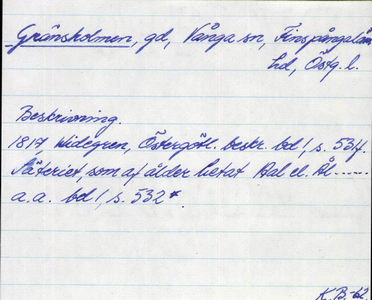 Gränsholmen, gd, Vånga sn, Finspångalän
hd, Östg. l.
Beskrivning.
1817, Widegren, Östergötl. beskr. bd 1, s. 531f.
Säteriet, som af ålder hetat Aal el. Ål.....
a.a. bd 1, s. 532*.
K.B-62